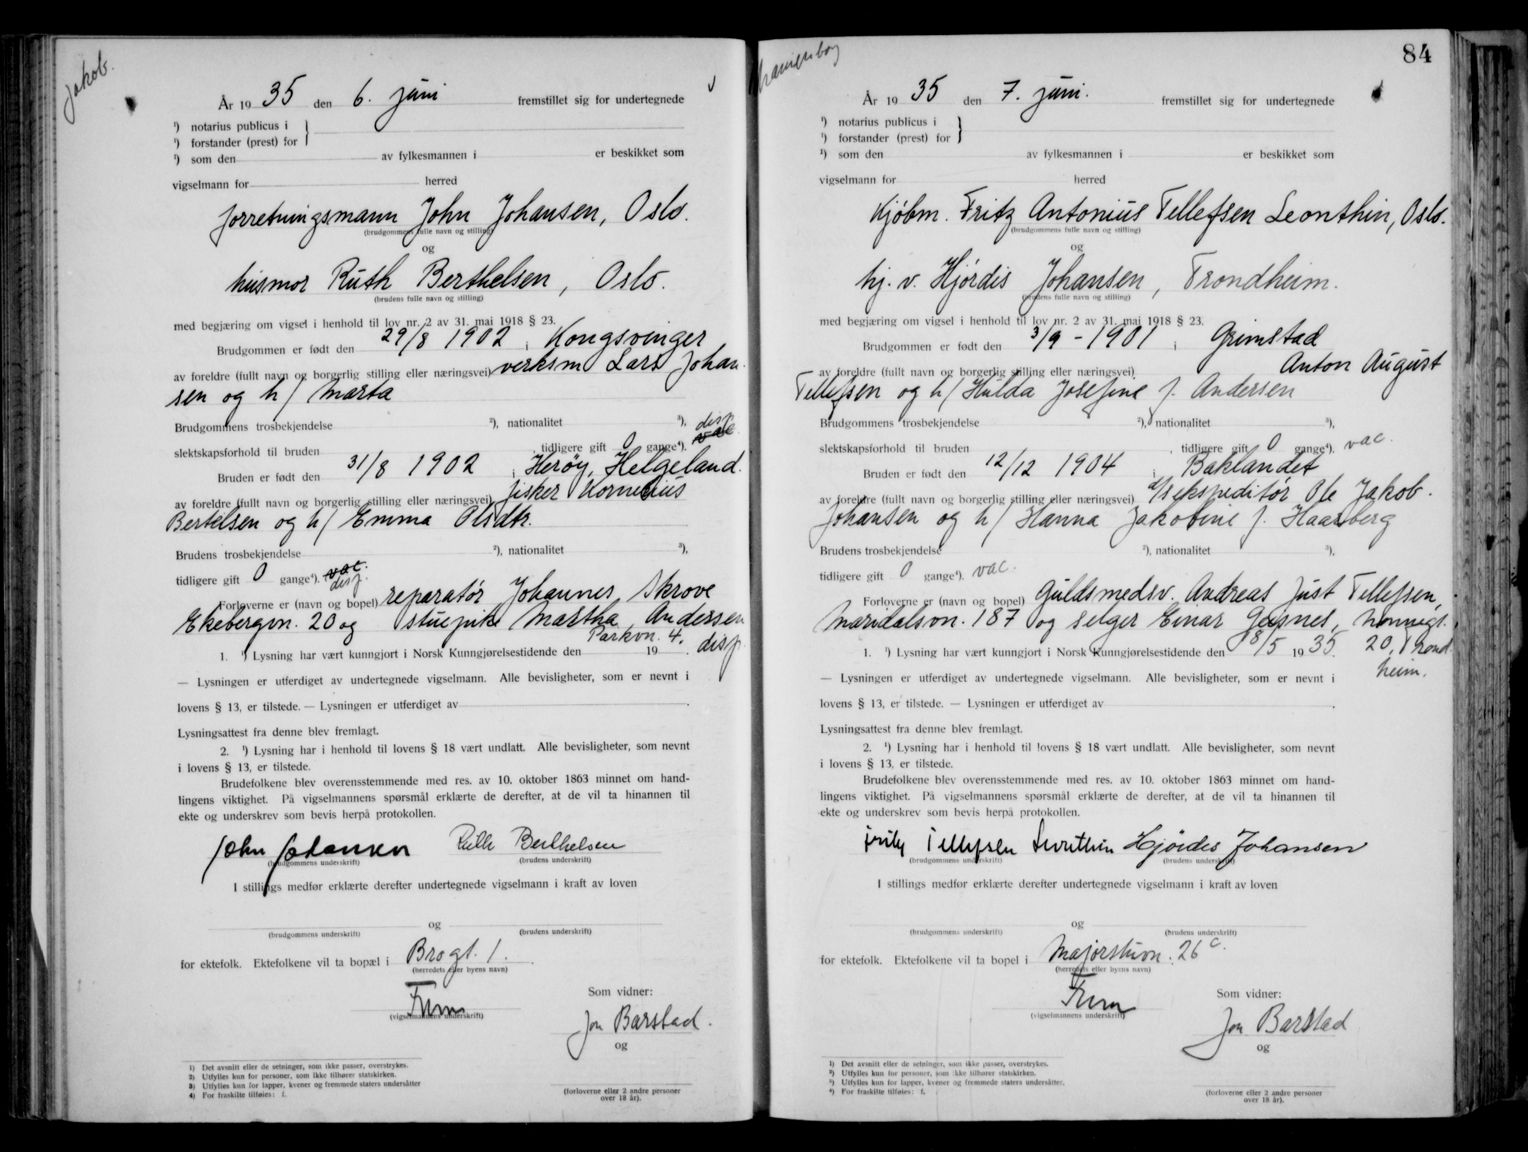 Jakob.
År 19 35 den 6. juni fremstillet sig for undertegnede
¹) notarius publicus i
¹) forstander (prest) for
¹) som den av fylkesmannen i er beskikket som
vigselmann for herred
forretningsmann John Johansen, Oslo.
(brudgommens fulle navn og stilling)
og
husmor Ruth Berthelsen, Oslo.
(brudens fulle navn og stilling)
med begjæring om vigsel i henhold til lov nr. 2 av 31. mai 1918 § 23.
Brudgommen er født den 29/8 1902 i Kongsvinger
av foreldre (fullt navn og borgerlig stilling eller næringsvei) verksm Lars Johan-
sen og h/ Marta
Brudgommens trosbekjendelse ²), nationalitet ³), disp.
slektskapsforhold til bruden tidligere gift 0 gange⁴). vac
Bruden er født den 31/8 1902 i Herøy, Helgeland.
av foreldre (fullt navn og borgerlig stilling eller næringsvei) fisker Kornelius
Bertelsen og h/ Emma Olsdtr.
Brudens trosbekjendelse ²), nationalitet ³),
tidligere gift 0 gange⁴). vac. disp.
Forloverne er (navn og bopel) reparatør Johannes Skrove
Ekebergvn. 20 og stuepike Martha Andersen
Parkvn. 4.
1. ¹) Lysning har vært kunngjort i Norsk Kunngjørelsestidende den 19 disp.
— Lysningen er utferdiget av undertegnede vigselmann. Alle bevisligheter, som er nevnt i
lovens § 13, er tilstede. — Lysningen er utferdiget av
Lysningsattest fra denne blev fremlagt.
2. ¹) Lysning har i henhold til lovens § 18 vært undlatt. Alle bevisligheter, som nevnt
i lovens § 13, er tilstede.
Brudefolkene blev overensstemmende med res. av 10. oktober 1863 minnet om hand-
lingens viktighet. På vigselmannens spørsmål erklærte de derefter, at de vil ta hinannen til
ekte og underskrev som bevis herpå protokollen.
John Johansen Ruth Berthelsen
(brudgommens underskrift) (brudens underskrift)
I stillings medfør erklærte derefter undertegnede vigselmann i kraft av loven
og
(brudgommens underskrift) (brudens underskrift)
for ektefolk. Ektefolkene vil ta bopæl i Brogt. 1.
(herredets eller byens navn)
Som vidner:
(vigselmannens underskrift)
Jon Barstad.
og
1) Det avsnitt eller de setninger, som ikke passer, overstrykes.
2) Utfylles kun for personer, som ikke tilhører statskirken.
3) Utfylles kun for lapper, kvener og fremmede staters undersåtter
4) For fraskilte tilføies: f.
(forloverne eller 2 andre personer
over 18 år).
84
År 19 35 den 7. juni. fremstillet sig for undertegnede
¹) notarius publicus i
¹) forstander (prest) for
¹) som den av fylkesmannen i er beskikket som
vigselmann for herred
Kjøbm. Fritz Antonius Tellefsen Leonthin, Oslo.
(brudgommens fulle navn og stilling)
og
hj. v. Hjördis Johansen, Trondheim.
(brudens fulle navn og stilling)
med begjæring om vigsel i henhold til lov nr. 2 av 31. mai 1918 § 23.
Brudgommen er født den 3/9 - 1901 i Grimstad
av foreldre (fullt navn og borgerlig stilling eller næringsvei) Anton August
Tellefsen og h/ Hulda Josefine f. Andersen
Brudgommens trosbekjendelse ²), nationalitet ³),
slektskapsforhold til bruden tidligere gift 0 gange⁴). vac.
Bruden er født den 12/12 1904 i Baklandet
av foreldre (fullt navn og borgerlig stilling eller næringsvei) ekspeditör Ole Jakob
Johansen og h/ Hanna Jakobine f. Haarberg
Brudens trosbekjendelse ²), nationalitet ³),
tidligere gift 0 gange⁴). vac.
Forloverne er (navn og bopel) Guldsmedsv. Andreas Just Tellefsen,
Maridalsvn. 187 og selger Einar
1. ¹) Lysning har vært kunngjort i Norsk Kunngjørelsestidende den 18/5 19 35. 20, Trond-
heim.
— Lysningen er utferdiget av undertegnede vigselmann. Alle bevisligheter, som er nevnt i
lovens § 13, er tilstede. — Lysningen er utferdiget av
Lysningsattest fra denne blev fremlagt.
2. ¹) Lysning har i henhold til lovens § 18 vært undlatt. Alle bevisligheter, som nevnt
i lovens § 13, er tilstede.
Brudefolkene blev overensstemmende med res. av 10. oktober 1863 minnet om hand-
lingens viktighet. På vigselmannens spørsmål erklærte de derefter, at de vil ta hinannen til
ekte og underskrev som bevis herpå protokollen.
Tellefsen Leonthin Hjördis Johansen
(brudgommens underskrift) (brudens underskrift)
I stillings medfør erklærte derefter undertegnede vigselmann i kraft av loven
og
(brudgommens underskrift) (brudens underskrift)
for ektefolk. Ektefolkene vil ta bopel i Majorstuvn. 26 c.
(herredets eller byens navn)
Som vidner:
(vigselmannens underskrift)
Jon Barstad
og
1) Det avsnitt eller de setninger, som ikke passer, overstrykes.
2) Utfylles kun for personer, som ikke tilhører statskirken.
3) Utfylles kun for lapper, kvener og fremmede staters undersåtter.
4) For fraskilte tilføies: f.
(forloverne eller 2 andre personer
over 18 år).